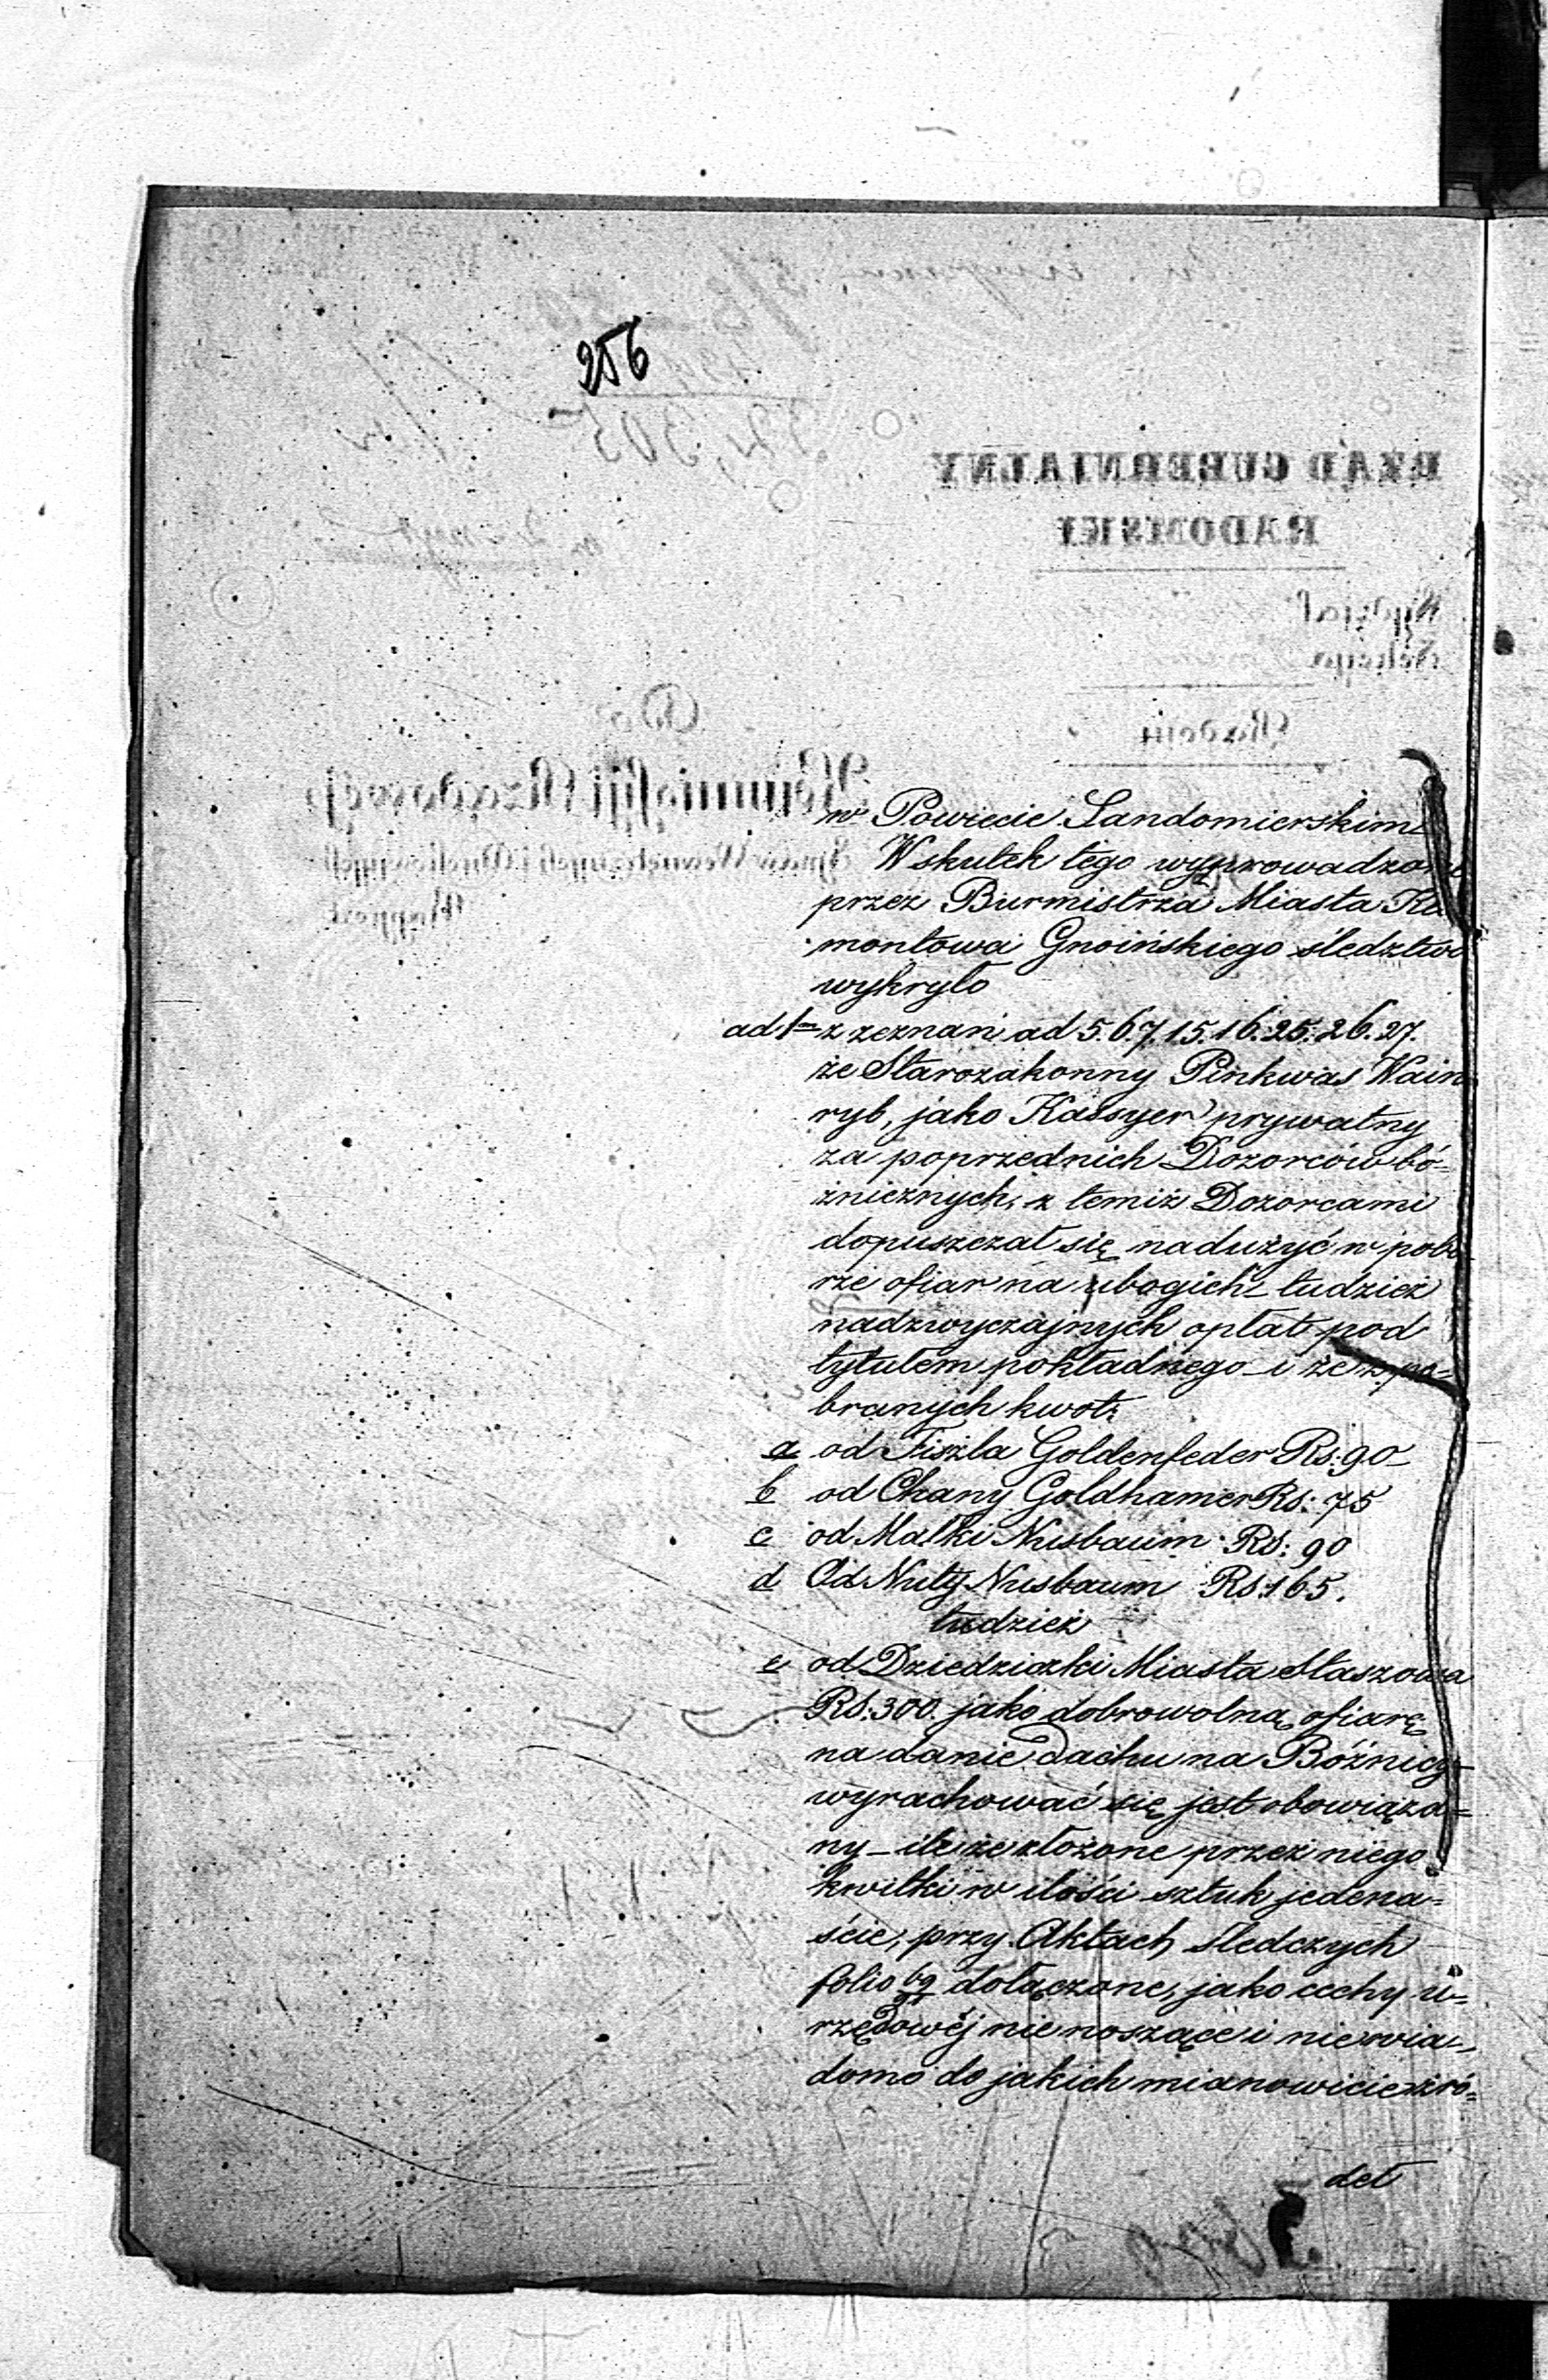 256
w Powiecie Sandomierskim
Wskutek tego wyprowadzone
przez Burmistrza Miasta Kli
montowa Gnoińskiego śledztwo
wykryło
ad 1m z zeznań ad 5. 6. 7. 15. 16. 25. 26. 27.
że Starozakonny Pinkwas Wain
ryb, jako Kassyer prywatny
za poprzednich Dozorców bó=
żnicznych, z temiż Dozorcami
dopuszczał się nadużyć w pobo
rze ofiar na ubogich tudzież
nadzwyczajnych opłat pod
tytułem pokładnego – i że z po=
branych kwot:
a od Fiszla Goldenfeder Rs: 90
b od Chany Goldhamer Rs: 75
c od Małki Nusbaum Rs: 90
d Od Nuty Nusbaum Rs: 165.
tudzież
e od Dziedziczki Miasta Staszowa
Rs: 300 jako dobrowolną ofiarę
na danie dachu na Bóżnicy
wyrachować się jest obowiąza=
ny – ile że złożone przez niego
kwitki w ilości sztuk jedena=
ście, przy Aktach śledczych
folio dołączone, jako cechy u=
rzędowéj nie noszące i niewia=
domo do jakich mianowicie źró=
deł